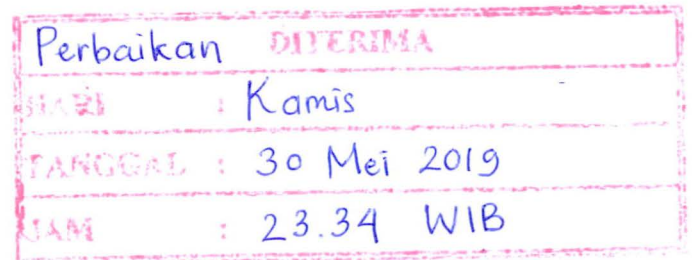 Perbaikan DITERIMA
HARI : Kamis
TANGGAL : 30 Mei 2019
JAM : 23.34 WIB